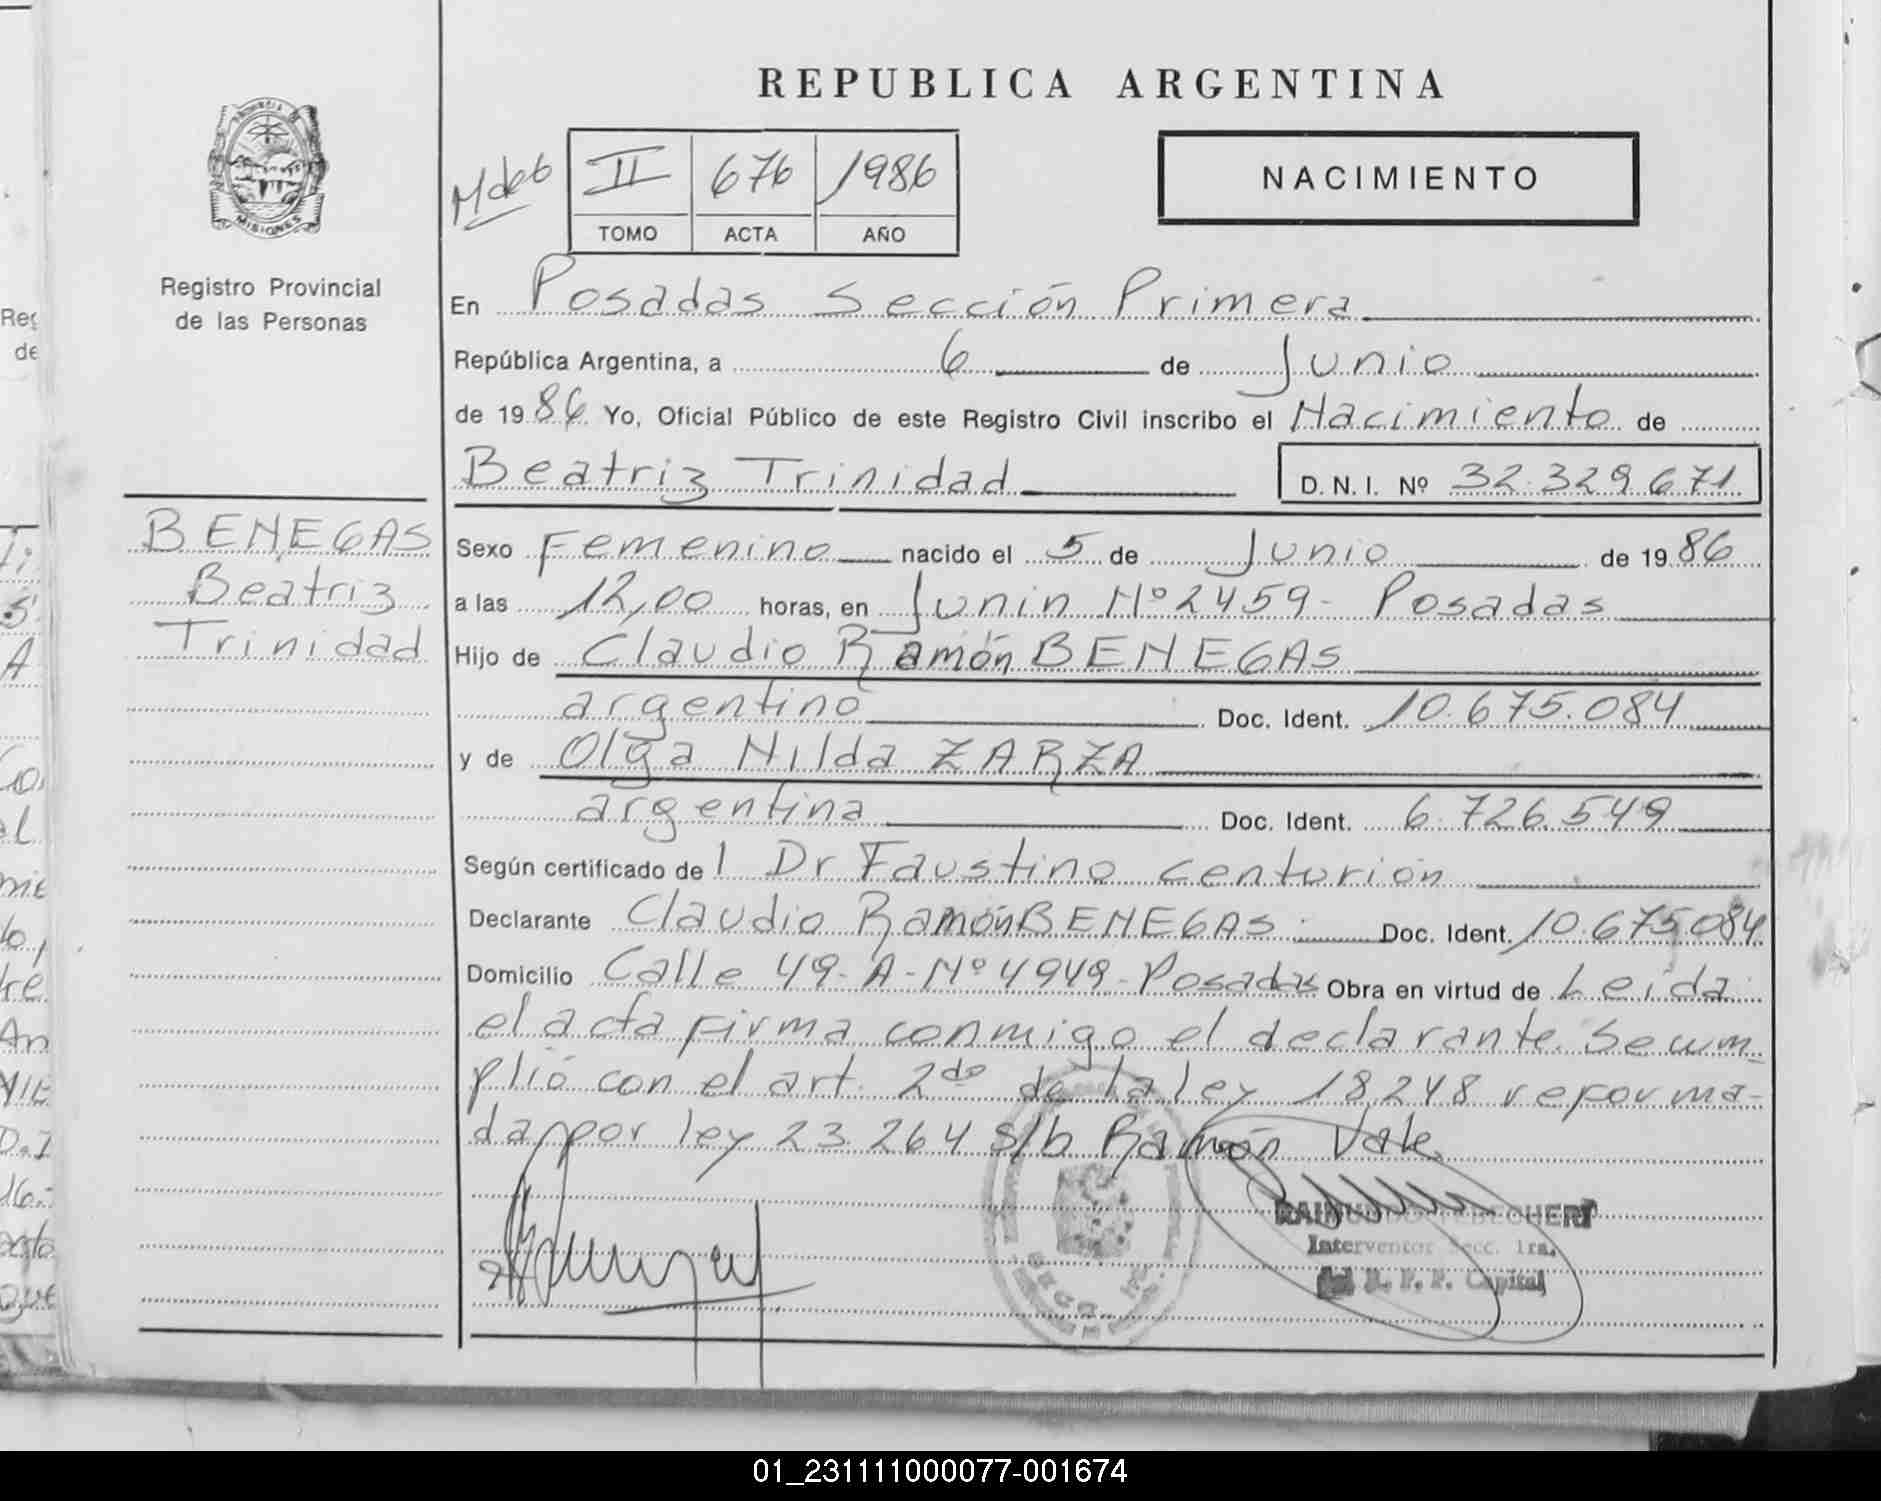 REPUBLICA ARGENTINA
PROVINCIA DE
MISIONES
Registro Provincial
de las Personas
II 676 1986
TOMO ACTA AÑO
NACIMIENTO
En Posadas Sección Primera
República Argentina, a 6 de Junio
de 1986 Yo, Oficial Público de este Registro Civil inscribo el Nacimiento de
Beatriz Trinidad D.N.I. Nº 32.329.671
BENEGAS
Beatriz
Trinidad
Sexo Femenino nacido el 5 de Junio de 1986
a las 12,00 horas, en Junin Nº 2459- Posadas
Hijo de Claudio Ramón BENEGAS
argentino Doc. Ident. 10.675.084
y de Olga Nilda ZARZA
argentina Doc. Ident. 6.726.549
Según certificado de l Dr Faustino Centurión
Declarante Claudio Ramón BENEGAS Doc. Ident. 10.675.084
Domicilio Calle 49-A-Nº 4949-Posadas Obra en virtud de Leida
el acta firma conmigo el declarante. Se cum
plió con el art. 2do de la ley 18.248 reforma-
da por ley 23.264 s/b Ramón Vale
Interventor Secc. 1ra.
R. P. P. Capital
01_231111000077-001674